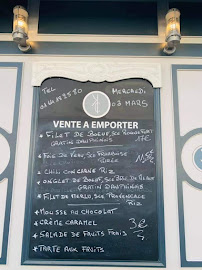 TEL
MERCREDI
03 MARS
VENTE A EMPORTER
* FILET DE BOEUF, SCE ROQUEFORT
GRATIN DAUPHINOIS 17€
* FOIE DE VEAU, SCE
PUREE
* CHILI CON CARNE RIZ
* ONGLET DE BOEUF, SCE
GRATIN DAUPHINOIS
* FILET DE MERLU, SCE PROVENCALE
RIZ
* MOUSSE AU CHOCOLAT
* CREME CARAMEL
* SALADE DE FRUITS FRAIS
* TARTE AUX FRUITS